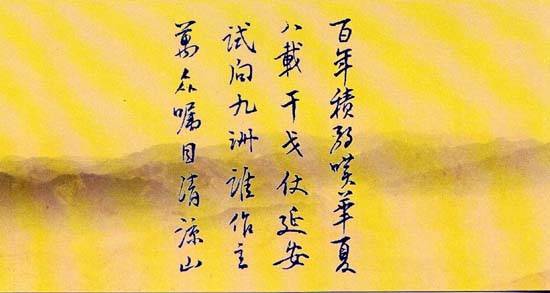 百年積弱嘆華夏
八載干戈仗延安
試问九洲誰作主
萬众嘱目清涼山